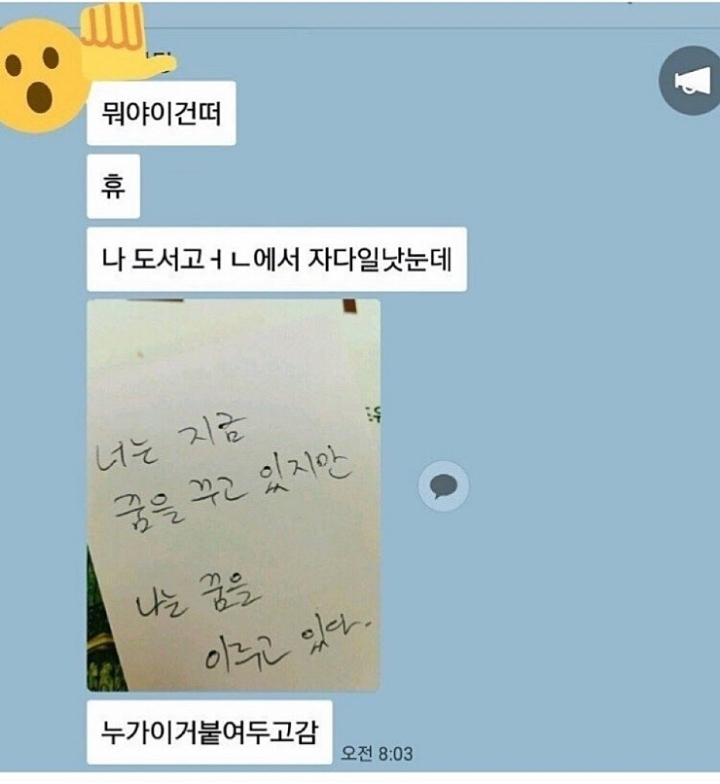 뭐야이건떠
휴
나 도서고ㅓㄴ에서 자다일낫눈데
너는 지금
꿈을 꾸고 있지만
나는 꿈을
이루고 있다.
누가이거붙여두고감
오전 8:03